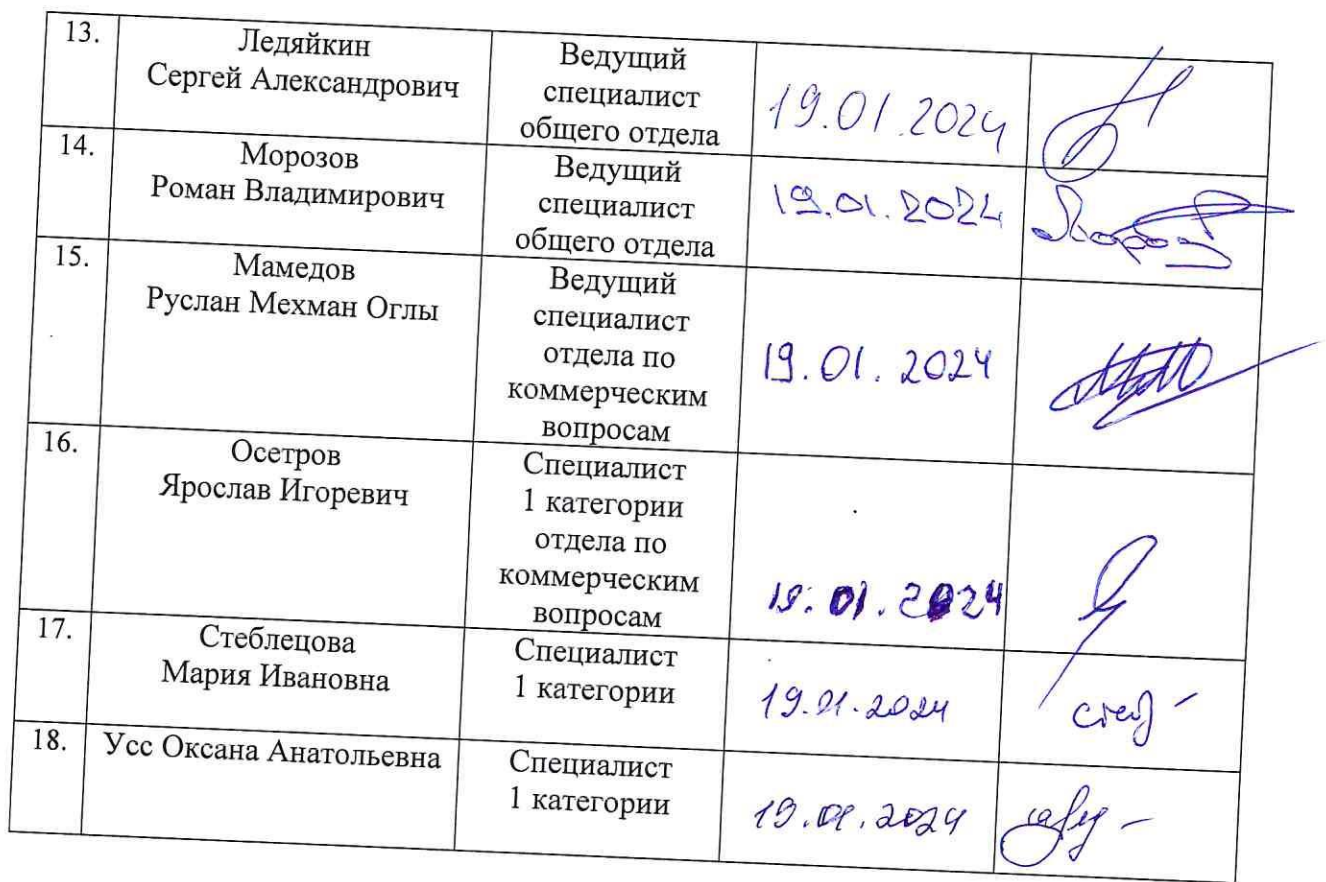 13.
Ледяйкин
Сергей Александрович
Ведущий
специалист
общего отдела
19.01.2024
14.
Морозов
Роман Владимирович
Ведущий
специалист
общего отдела
19.01.2024
15.
Мамедов
Руслан Мехман Оглы
Ведущий
специалист
отдела по
коммерческим
вопросам
19.01.2024
16.
Осетров
Ярослав Игоревич
Специалист
1 категории
отдела по
коммерческим
вопросам
19.01.2024
17.
Стеблецова
Мария Ивановна
Специалист
1 категории
19.01.2024
18.
Усс Оксана Анатольевна
Специалист
1 категории
19.01.2024